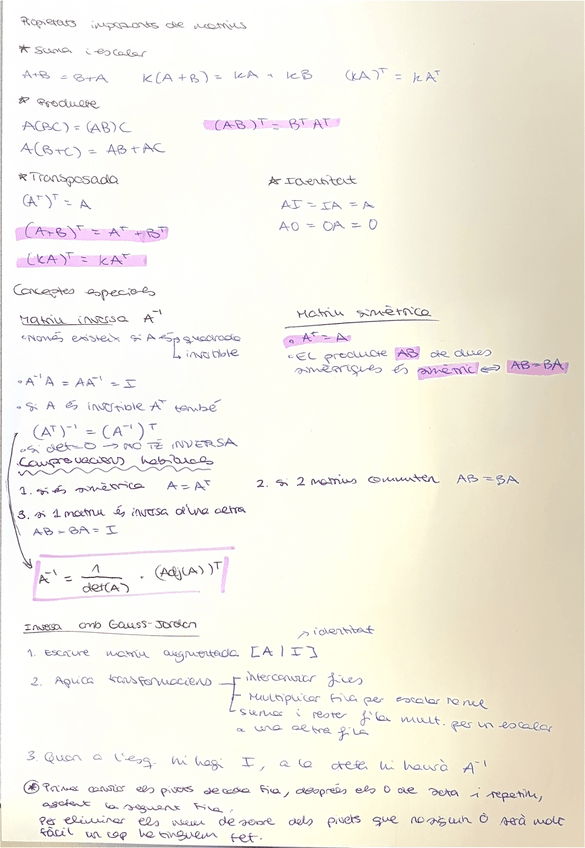 Propietats importants de matrius
* Suma i escalar
A+B = B+A   K(A+B) = KA + KB   (KA)ᵀ = KAᵀ
* Producte
A(BC) = (AB)C   (AB)ᵀ = BᵀAᵀ
A(B+C) = AB + AC
* Transposada
(Aᵀ)ᵀ = A
(A+B)ᵀ = Aᵀ + Bᵀ
(KA)ᵀ = KAᵀ
* Identitat
AI = IA = A
A0 = 0A = 0
Conceptes especials
Matriu inversa A⁻¹
• Només existeix si A és quadrada
invertible
• A⁻¹A = AA⁻¹ = I
• Si A és invertible Aᵀ també
(Aᵀ)⁻¹ = (A⁻¹)ᵀ
• Si det=0 → NO TÉ INVERSA
Matriu simètrica
• Aᵀ = A
• El producte AB de dues
simètriques és simètric ⇔ AB=BA
Comprovacions habituals
1. si és simètrica A = Aᵀ   2. si 2 matrius commuten AB = BA
3. si 1 matriu és inversa d'una altra
AB = BA = I
A⁻¹ = 1/det(A) · (Adj(A))ᵀ
Inversa amb Gauss-Jordan
→ identitat
1. Escriure matriu augmentada [A | I]
2. Aplica transformacions
intercanviar files
Multiplicar fila per escalar no nul
sumar i restar fila mult. per un escalar
a una altra fila
3. Quan a l'esq. hi hagi I, a la dreta hi haurà A⁻¹
* Primer canviar els pivots de cada fila, després els 0 de sota i repetim,
agafant la següent fila.
Per eliminar els num de sobre dels pivots que no siguin 0 serà molt
fàcil un cop ho tinguem fet.